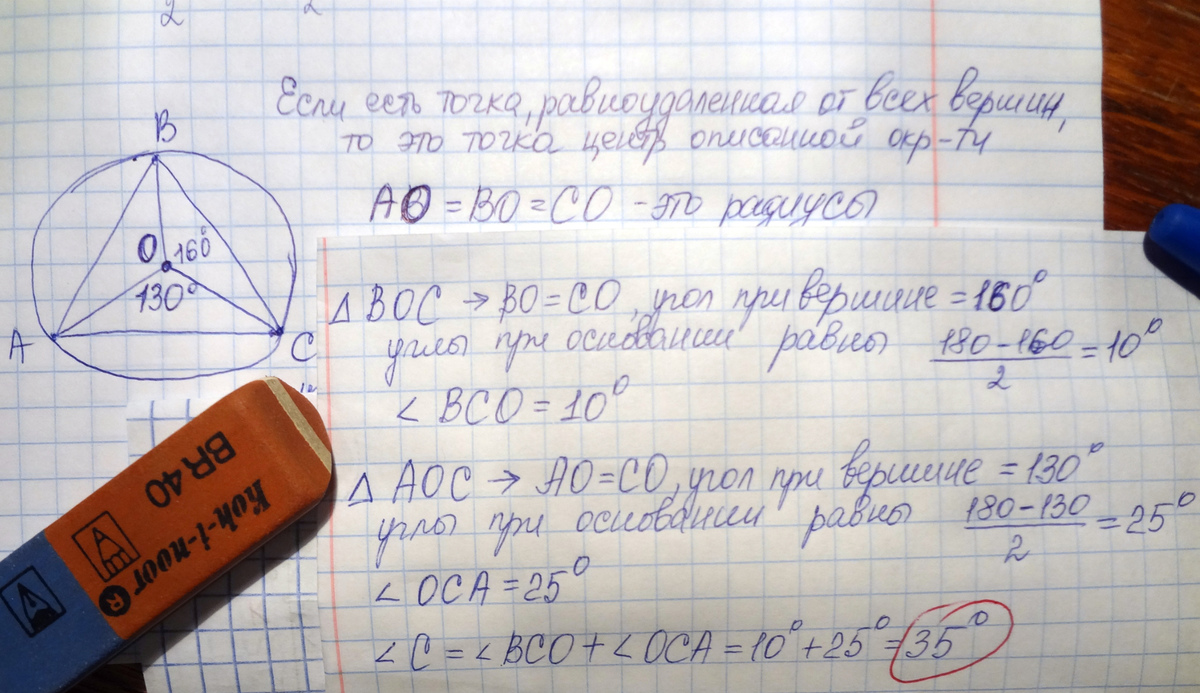 2 2
Если есть точка, равноудаленная от всех вершин,
то это точка центр описанной окр-ти
B
AO = BO = CO - это радиусы
O 160°
130°
A
C
△ BOC → BO = CO, угол при вершине = 160°
углы при основании равны (180-160)/2 = 10°
∠ BCO = 10°
△ AOC → AO = CO, угол при вершине = 130°
углы при основании равны (180-130)/2 = 25°
∠ OCA = 25°
∠ C = ∠ BCO + ∠ OCA = 10° + 25° = 35°
BR 40
Koh-i-noor ®